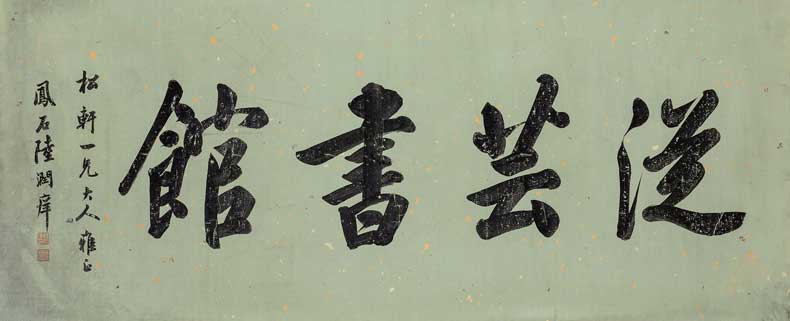 從芸書館
松軒一兄大人雅正
鳳石陸潤庠